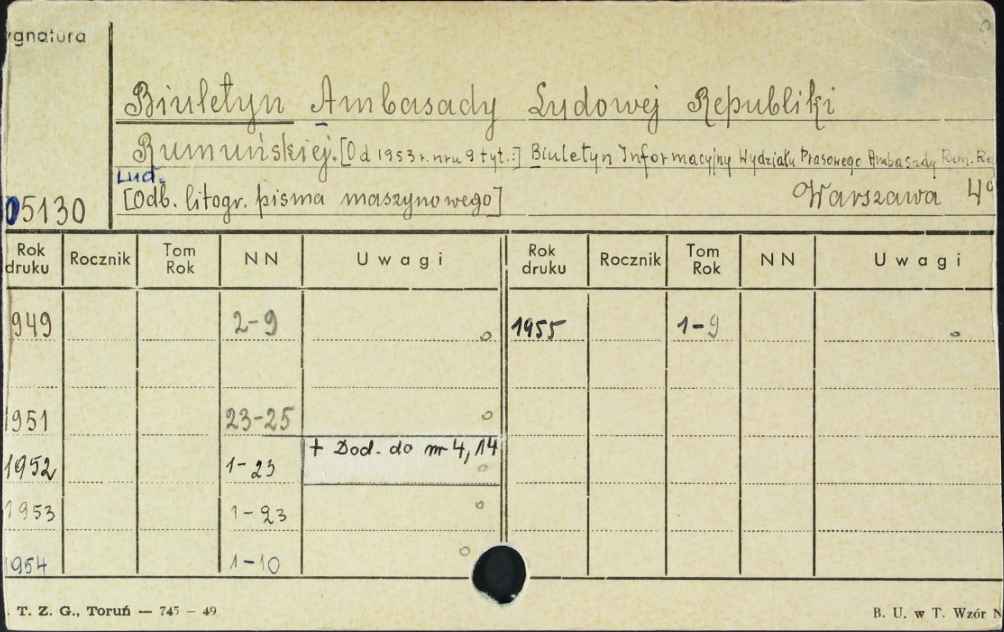 ygnatura
Biuletyn Ambasady Ludowej Republiki
Rumuńskiej. [Od 1953 r. nru 9 tyt.:] Biuletyn Informacyjny Wydziału Prasowego Ambasady Rum. Re
Lud.
05130 [Odb. litogr. pisma maszynowego] Warszawa 49
Rok druku Rocznik Tom Rok NN Uwagi Rok druku Rocznik Tom Rok NN Uwagi
949 2-9 1955 1-9
1951 23-25
+ Dod. do nr 4, 14
1952 1-23
1953 1-23
1954 1-10
. T. Z. G., Toruń — 745 - 49 B. U. w T. Wzór N